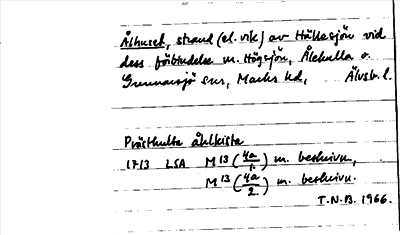 Ålhuset, strand (el. vik) av Hällesjön vid
dess förbindelse m. Högsjön, Älekulla o.
Gunnarsjö snr, Marks hd, Älvsb. l.
Prästhulta åhlkista
1713 LSA M 13 (4a/1) m. beskrivn,
M 13 (4a/2) m. beskrivn.
T.N.B. 1966.